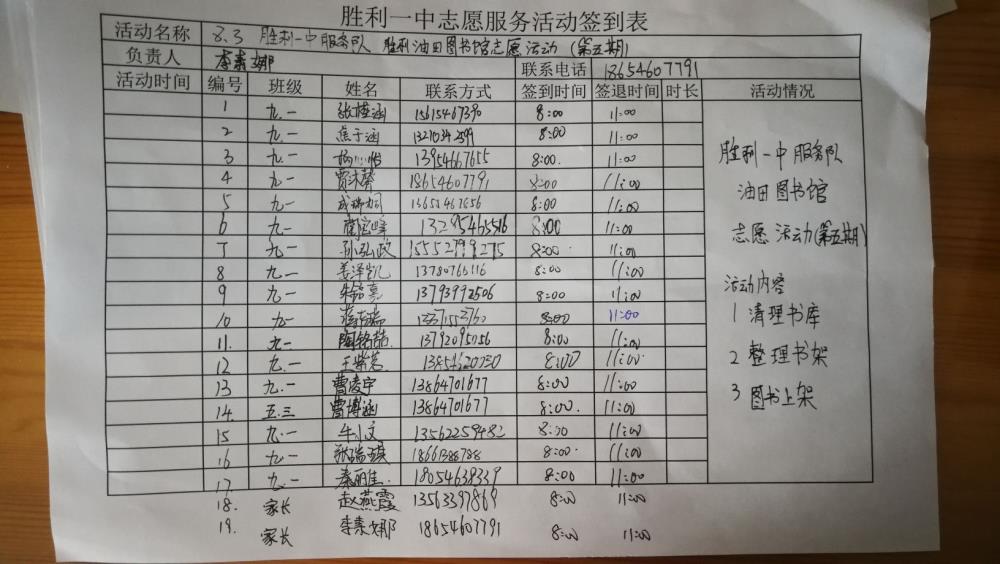 胜利一中志愿服务活动签到表
活动名称 8.3 胜利一中服务队 胜利油田图书馆志愿活动(第五期)
负责人 李素娜 联系电话 18654607791
活动时间 编号 班级 姓名 联系方式 签到时间 签退时间 时长 活动情况
1 九.一 15615467390 8:00 11:00
2 九.一 焦子涵 8:00 11:00
3 九.一 13954667655 8:00. 11:00
4 九.一 贾沐馨 18654607791 8:00 11:00
5 九一 8:00 11:00
6 九一 13295465516 8:00 11:00
7 九一 孙弘政 15552799275 8:00 11:00
8 九.一 姜泽凯 13780765116 8:00 11:00
9 九.一 朱铭熹 13793992506 8:00 11:00
10 九一 8:00 11:00
11. 九一 陶铭喆 13792095056 8:00 11:00
12 九.一 王紫茗 8:00 11:00
13 九.一 曹凌宇 13864701677 8:00 11:00
14 五.三 曹博涵 13864701677 8:00. 11:00
15 九.一 牛小文 13562259482 8:00 11:00
16 九一 8:00 11:00
17 九.一 秦丽佳 18054638339 8:00 11:00
18. 家长 赵燕霞 13563397869 8:00 11:00
19. 家长 李素娜 18654607791 8:00 11:00
胜利一中服务队
油田图书馆
志愿活动(第五期)
活动内容
1 清理书库
2 整理书架
3 图书上架